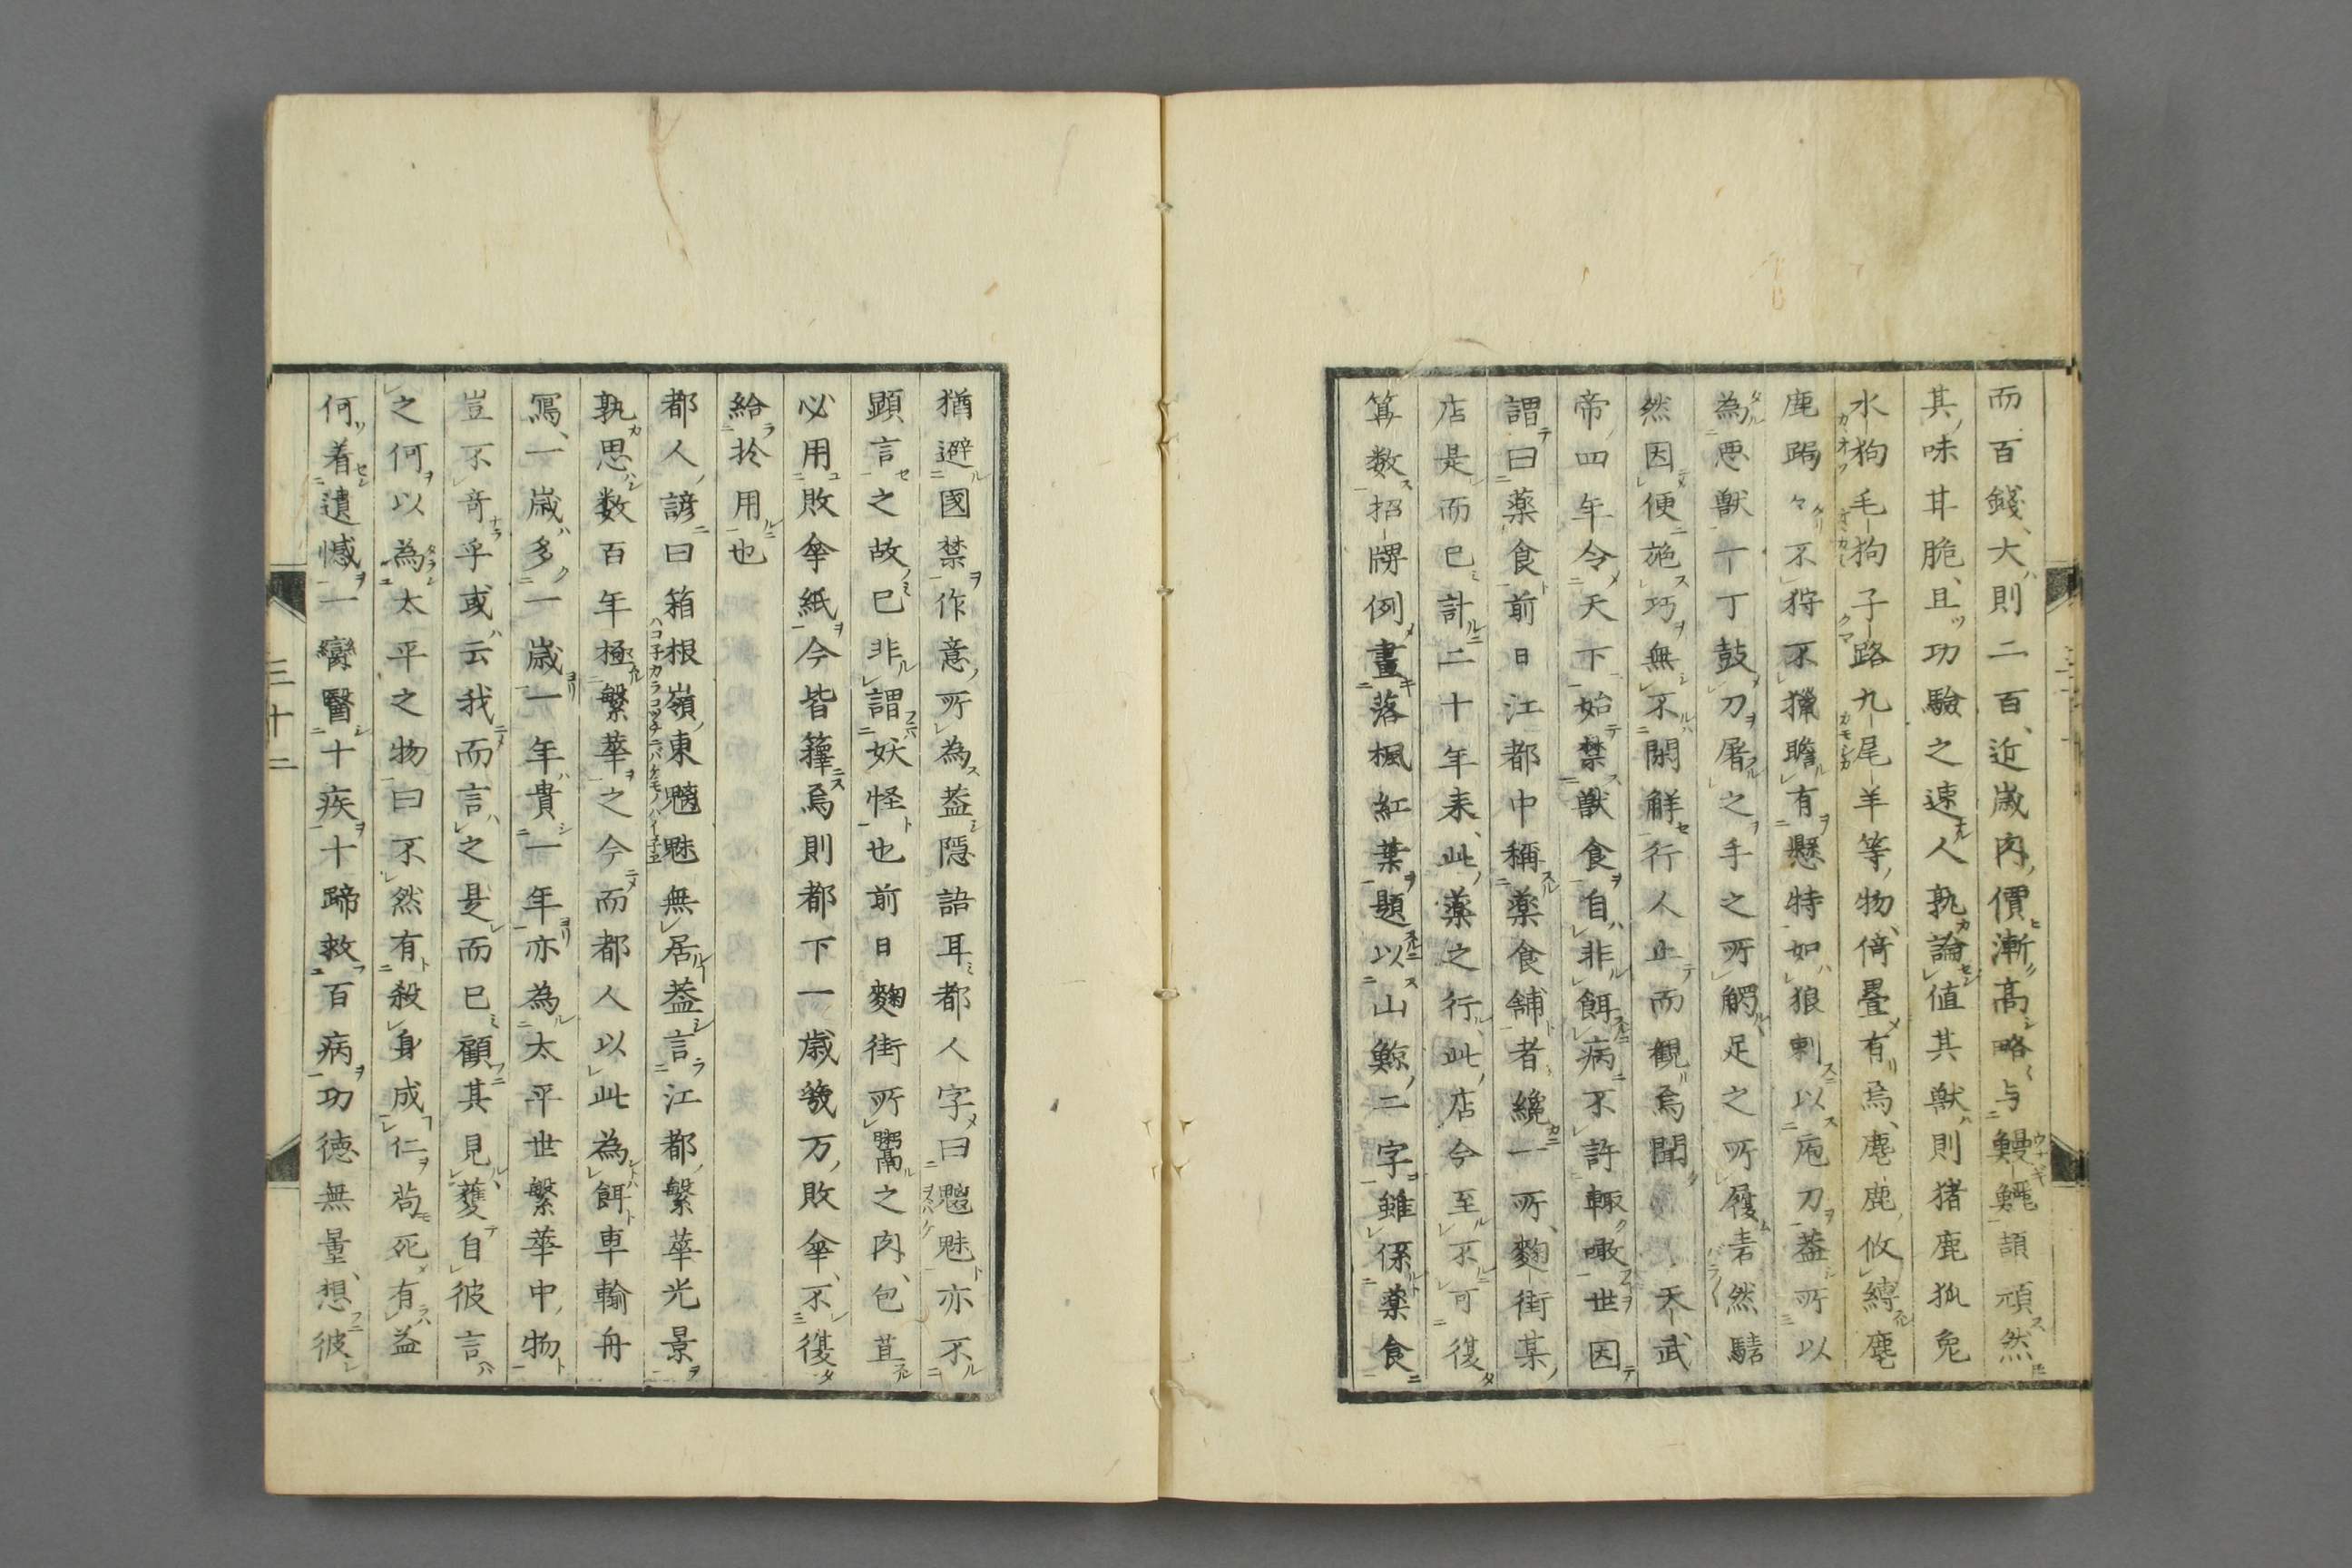 而百錢、大則二百、近歳肉價漸高略与鰻鱺頡頏然
其味甘脆、且功驗之速人孰論値其獣則猪鹿狐兔
水狗毛狗子路九尾羊等物、倚疊有焉、麀鹿攸縛麀
鹿跼々不狩不獵瞻有懸特如狼剌以庖刀葢所以
為悪獣丁丁鼓刀屠之手之所觸足之所履砉然騞
然因便施巧無不閑觧行人止而觀焉聞 天武
帝四年令天下始禁獣食自非餌病不許輙噉世因
謂曰薬食前日江都中稱薬食舗者纔一所、麹街某
店是而已計二十年来、此薬之行、此店今至不可復
算数招牌例畫落楓紅葉題以山鯨二字雖係薬食
猶避國禁作意所為葢隠語耳都人字曰魑魅亦不
顕言之故已非謂妖怪也前日麹街所鬻之肉、包苴
必用敗傘紙今皆籜焉則都下一歳幾万敗傘、不復
給於用也
都人諺曰箱根嶺東魑魅無居葢言江都繁華光景
ハコ子カラコッチニバケモノハイ子エ
孰思数百年極繁華之今而都人以此為餌車輪舟
寫、一歳多一歳一年貴一年亦為太平世繁華中物
豈不奇乎或云我而言之是而已顧其見獲自彼言
之何以為太平之物曰不然有殺身成仁苟死有益
何着遺憾一臠醫十疾十蹄救百病功徳無量、想彼
三十二